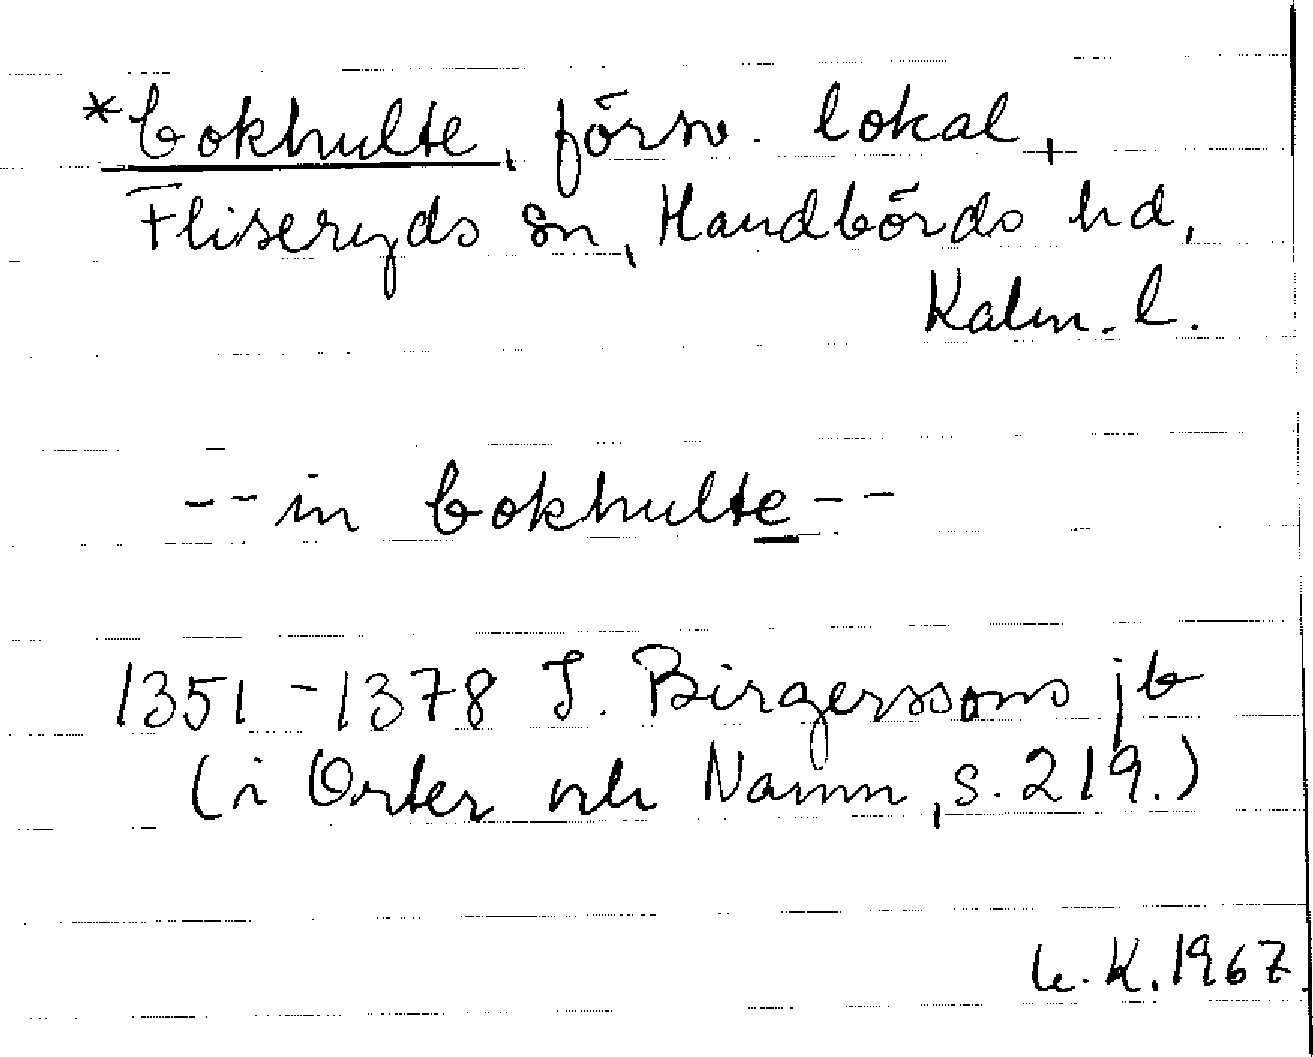 *bokhulte, försv. lokal,
Fliseryds sn, Handbörds hd,
Kalm. l.
-- in bokhulte --
1351-1378 J. Birgerssons jb
(i Orter och Namn, s. 219.)
K. 1967